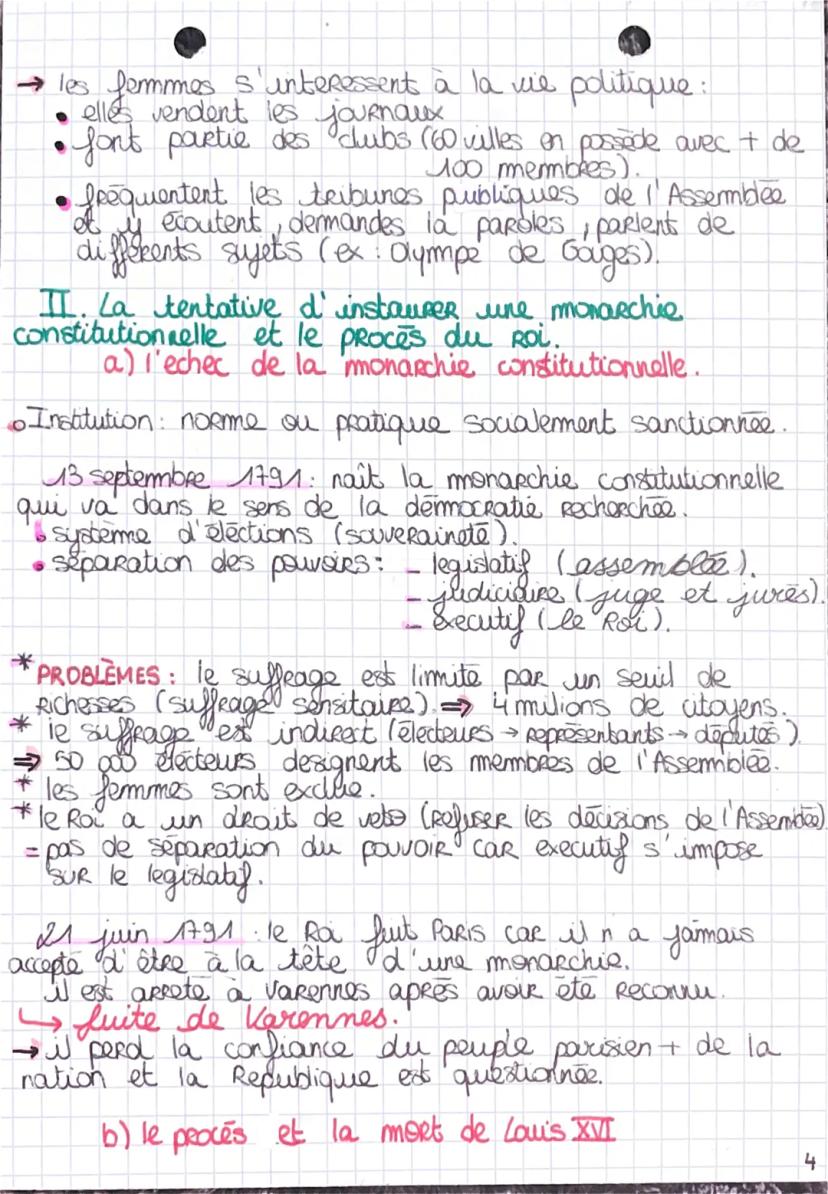 → les femmes s'interessent à la vie politique :
• elles vendent les journaux
• font partie des clubs (60 villes en possède avec + de
100 membres).
• fréquentent les tribunes publiques de l'Assemblée
et y écoutent, demandes la paroles, parlent de
différents sujets (ex : Olympe de Gouges).
II. La tentative d'instaurer une monarchie
constitutionnelle et le procès du Roi.
a) l'echec de la monarchie constitutionnelle.
o Institution : norme ou pratique socialement sanctionnée.
13 septembre 1791 : naît la monarchie constitutionnelle
qui va dans le sens de la démocratie recherchée.
• système d'élections (souveraineté).
• séparation des pouvoirs : - legislatif (assemblée).
- judiciaire (juge et jurés).
- executif (le Roi).
* PROBLÈMES : le suffrage est limité par un seuil de
Richesses (suffrage sensitaire) ⇒ 4 milions de citoyens.
* le suffrage est indirect (électeurs → représentants → députés)
⇒ 50 000 électeurs designent les membres de l'Assemblée.
* les femmes sont exclue.
* le Roi a un droit de veto (refuser les décisions de l'Assemblée)
= pas de séparation du pouvoir car executif s'impose
sur le legislatif.
21 juin 1791 : le Roi fuit Paris car il n a jamais
accepté d'être à la tête d'une monarchie.
il est arreté à Varennes après avoir été reconnu.
↳ fuite de Varennes.
→ il perd la confiance du peuple parisien + de la
nation et la République est questionnée.
b) le procès et la mort de Louis XVI
4